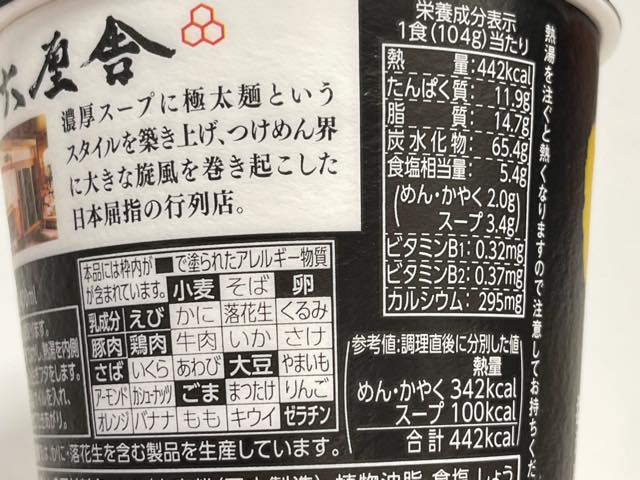 六厘舎
濃厚スープに極太麺という
スタイルを築き上げ、つけめん界
に大きな旋風を巻き起こした
日本屈指の行列店。
本品には枠内が■で塗られたアレルギー物質
が含まれています。
小麦 そば 卵
乳成分 えび かに 落花生 くるみ
豚肉 鶏肉 牛肉 いか さけ
さば いくら あわび 大豆 やまいも
アーモンド カシューナッツ ごま まつたけ りんご
オレンジ バナナ もも キウイ ゼラチン
かに・落花生を含む製品を生産しています。
栄養成分表示
1食(104g)当たり
熱量:442kcal
たんぱく質: 11.9g
脂質: 14.7g
炭水化物: 65.4g
食塩相当量: 5.4g
(めん・かやく 2.0g)
スープ 3.4g
ビタミンB1: 0.32mg
ビタミンB2: 0.37mg
カルシウム: 295mg
参考値:調理直後に分別した値
熱量
めん・かやく 342kcal
スープ 100kcal
合計 442kcal
熱湯を注ぐと熱くなりますので注意してお持ちくだ
植物油脂、食塩、しょう